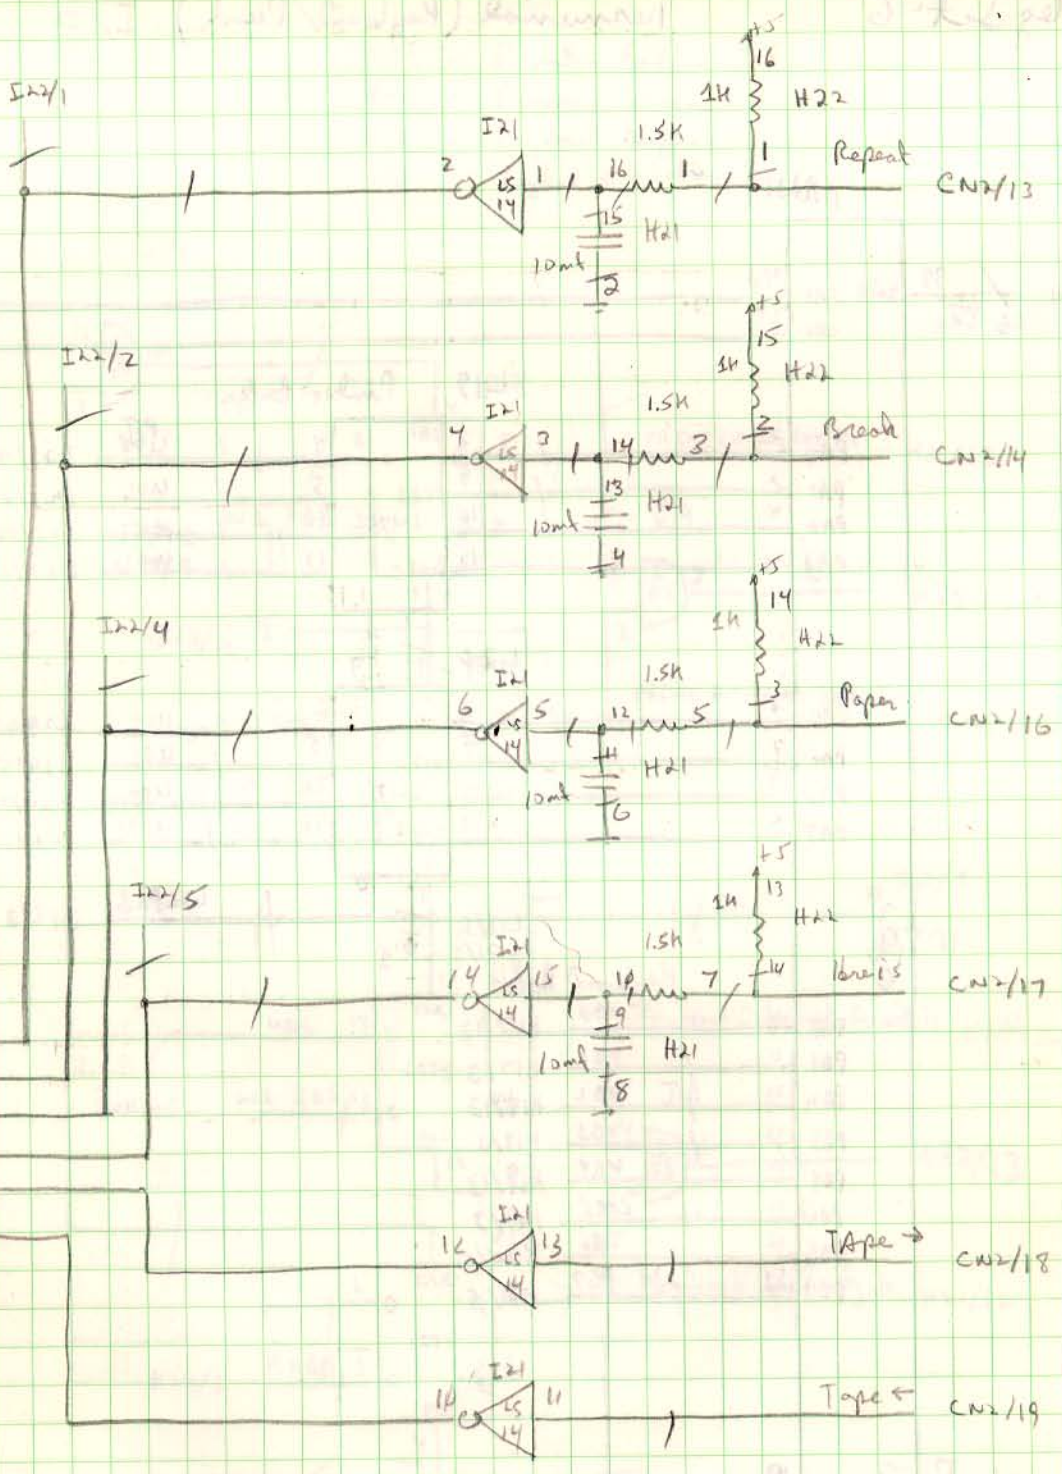 +5
16
I22/1
1K
H22
I21
1.5K
2
LS
14
1
16
1
1
Repeat
CN2/13
15
H21
10mf
2
+5
15
I22/2
1K
H22
I21
1.5K
4
LS
14
3
14
3
2
Break
CN2/14
13
H21
10mf
4
+5
14
I22/4
1K
H22
I21
1.5K
6
LS
14
5
12
5
3
Paper
CN2/16
11
H21
10mf
6
+5
13
I22/5
1K
H22
I21
1.5K
14
LS
14
15
10
7
14
CN2/17
9
H21
10mf
8
I21
12
LS
14
13
TApe →
CN2/18
I21
LS
14
11
Tape ←
CN2/19